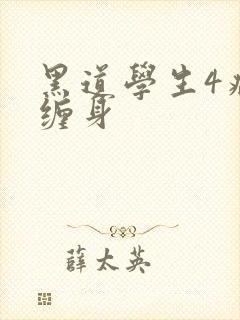 黑道學生4
缠身
薛太英